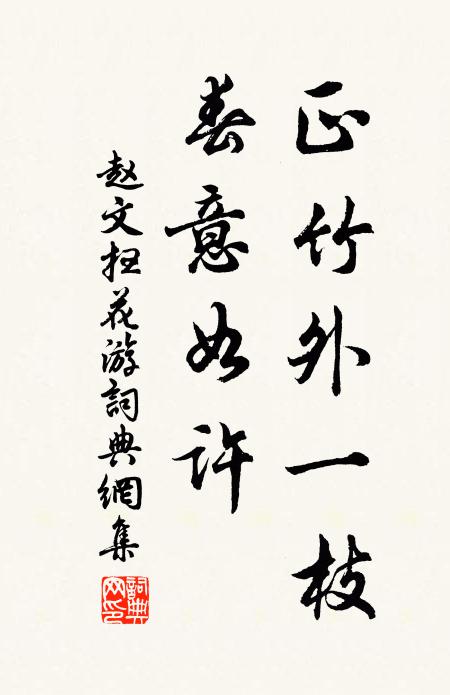 正竹外一枝
春意如許
赵文扫花游詞典網集
詞典网印